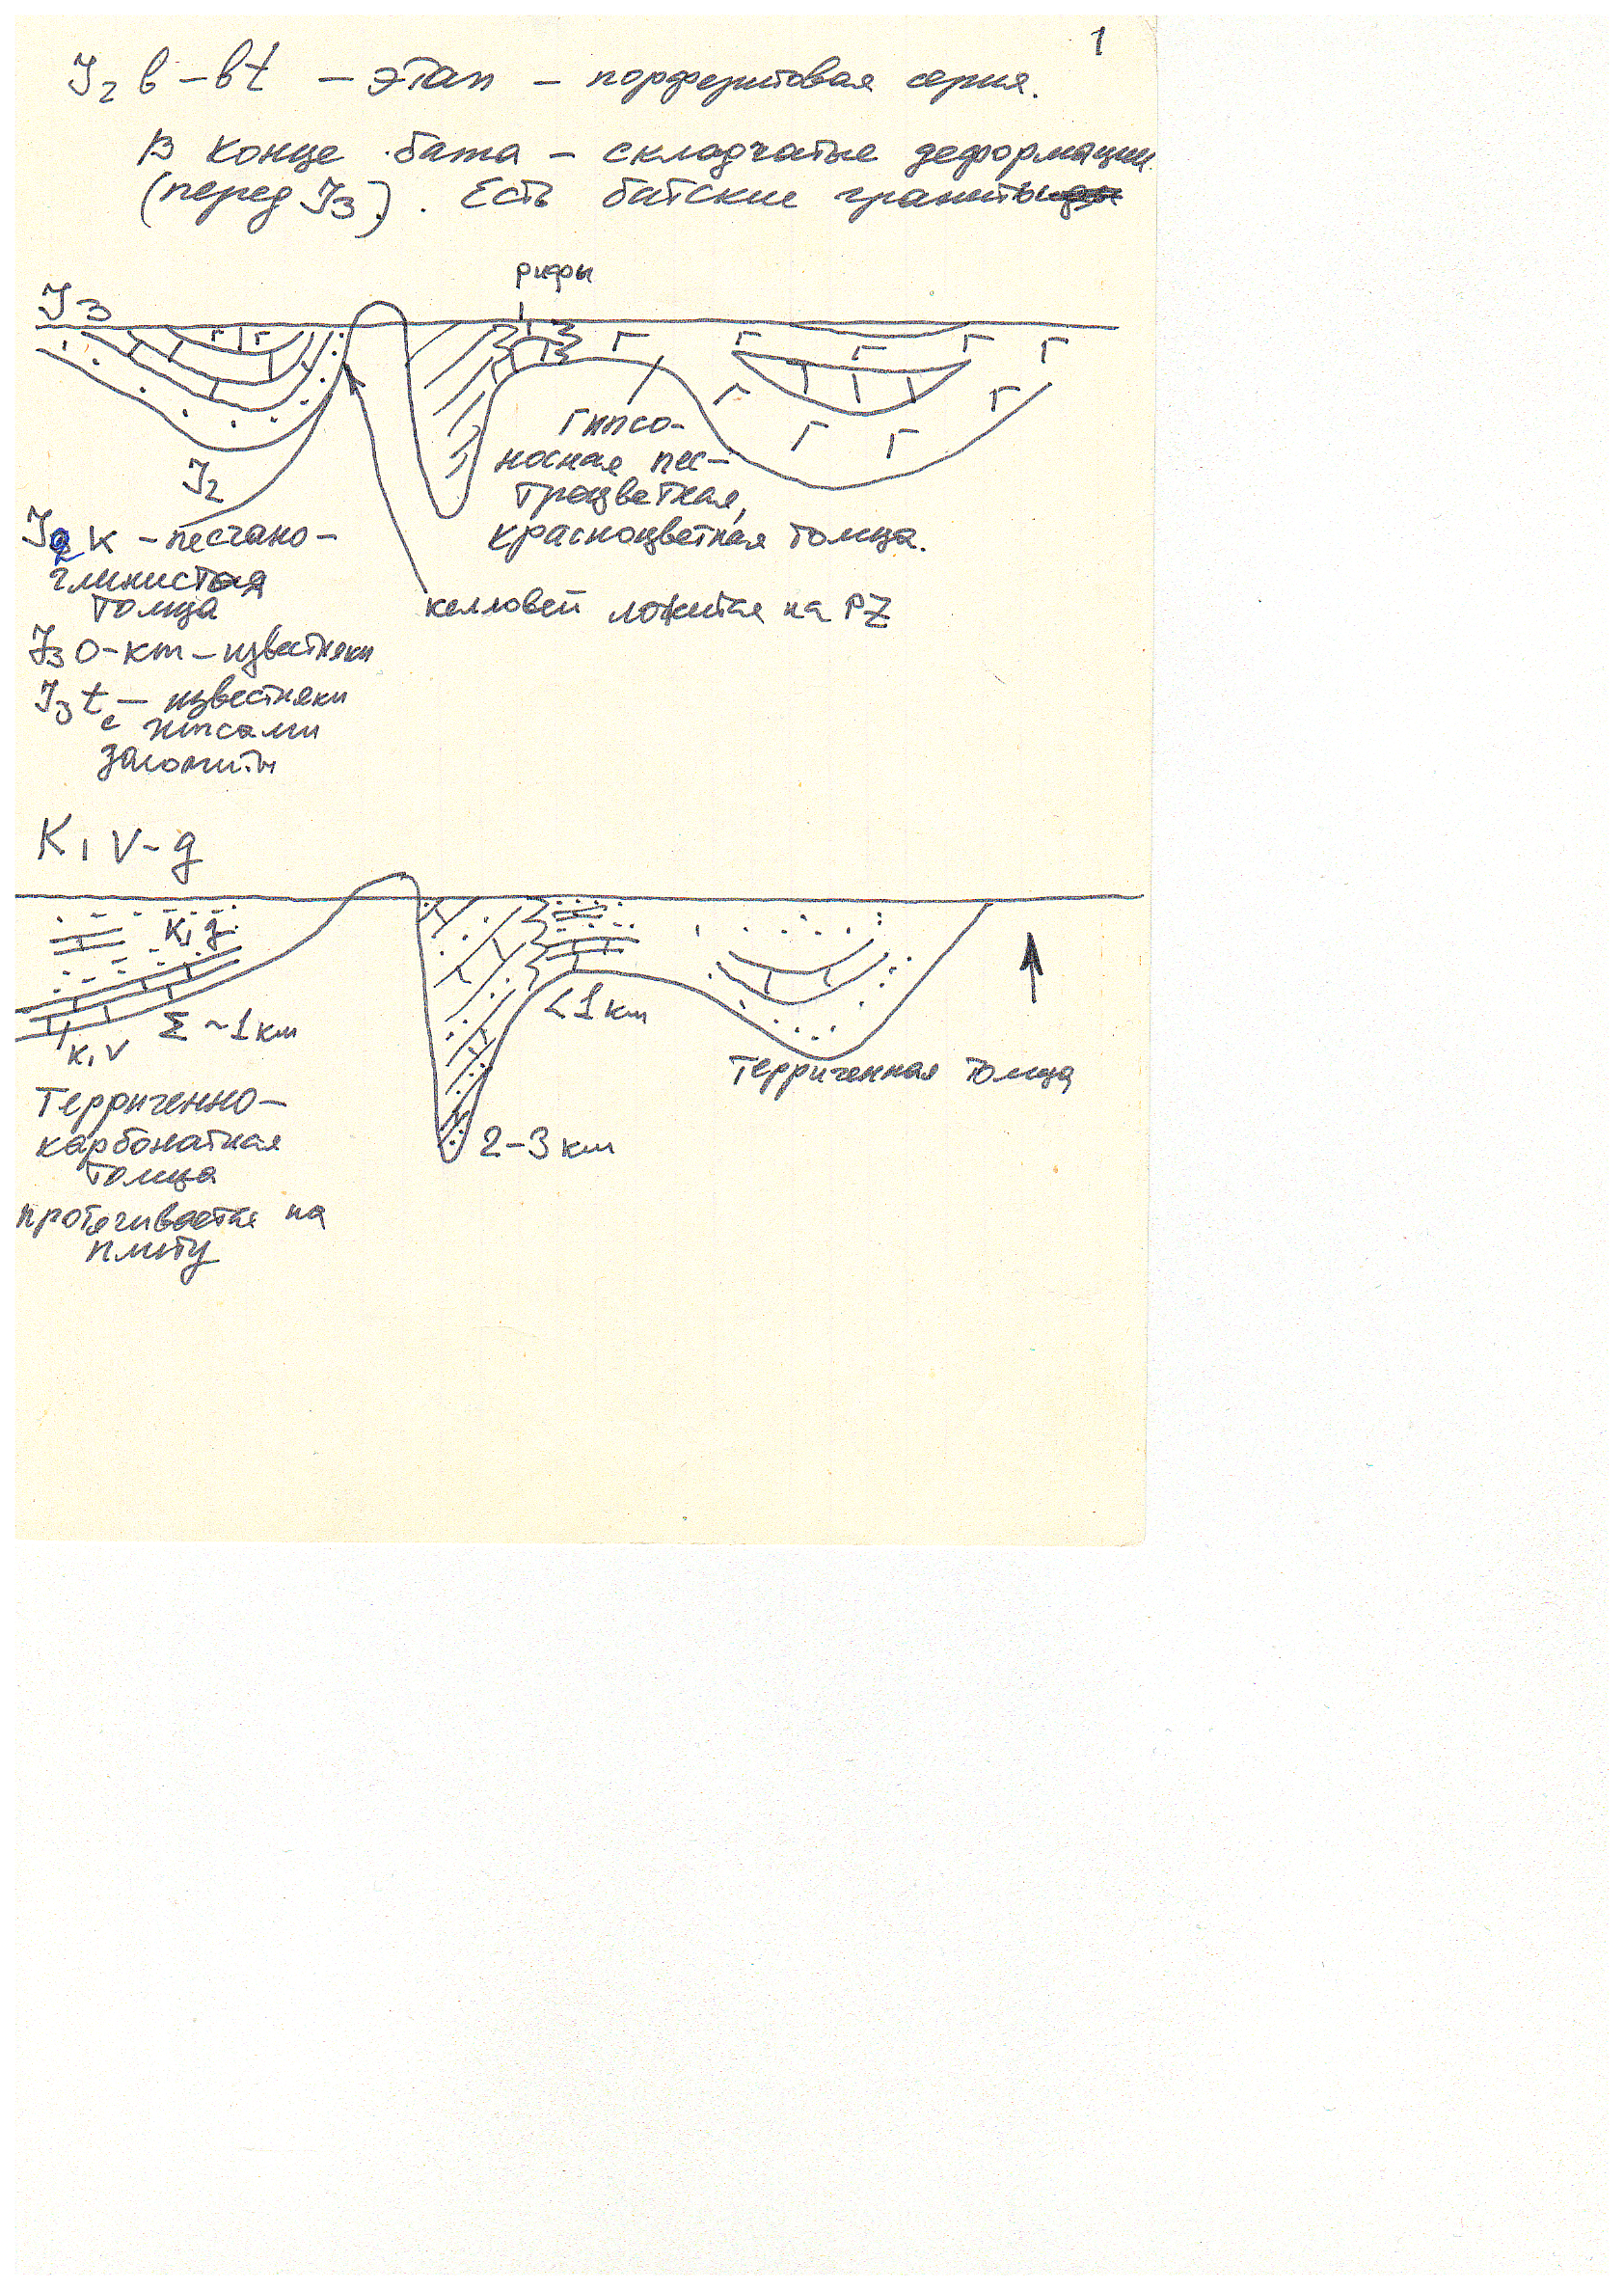 1
J₂ b – bt – этап – порфиритовая серия.
В конце бата – складчатые деформации
(перед J₃). Есть батские граниты
рифы
J₃
Гипсо-
носная пес-
троцветная,
красноцветная толща.
J₂
J₂ к – песчано-
глинистая
толща
келловей ложится на PZ
J₃ о-km – известняки
J₃ t – известняки
с гипсами
K₁ v-g
K₁ g
K₁ v
Σ ~1 км
<1 км
Терригенная толща
2-3 км
Терригенно-
карбонатная
толща
протягивается на
плиту